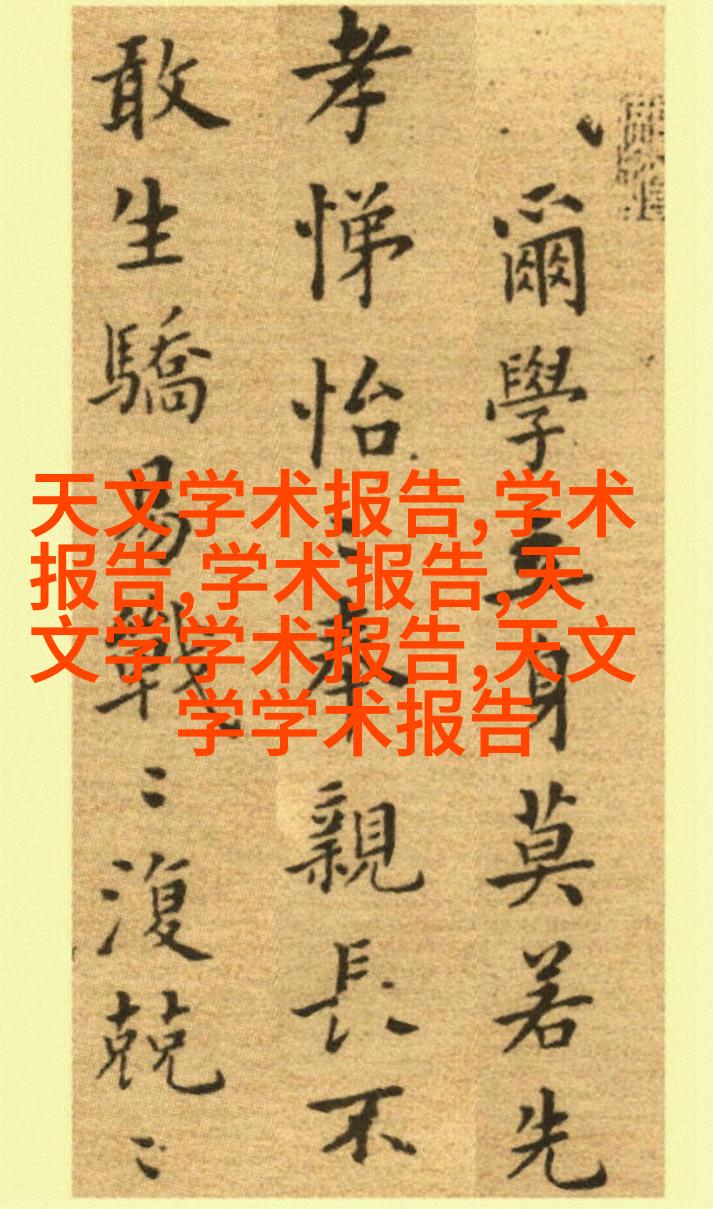 爾學立身莫若先
孝悌怡〻奉親長不
敢生驕易戰〻復兢〻
天文学术报告,学术
报告,学术报告,天
文学学术报告,天文
学学术报告